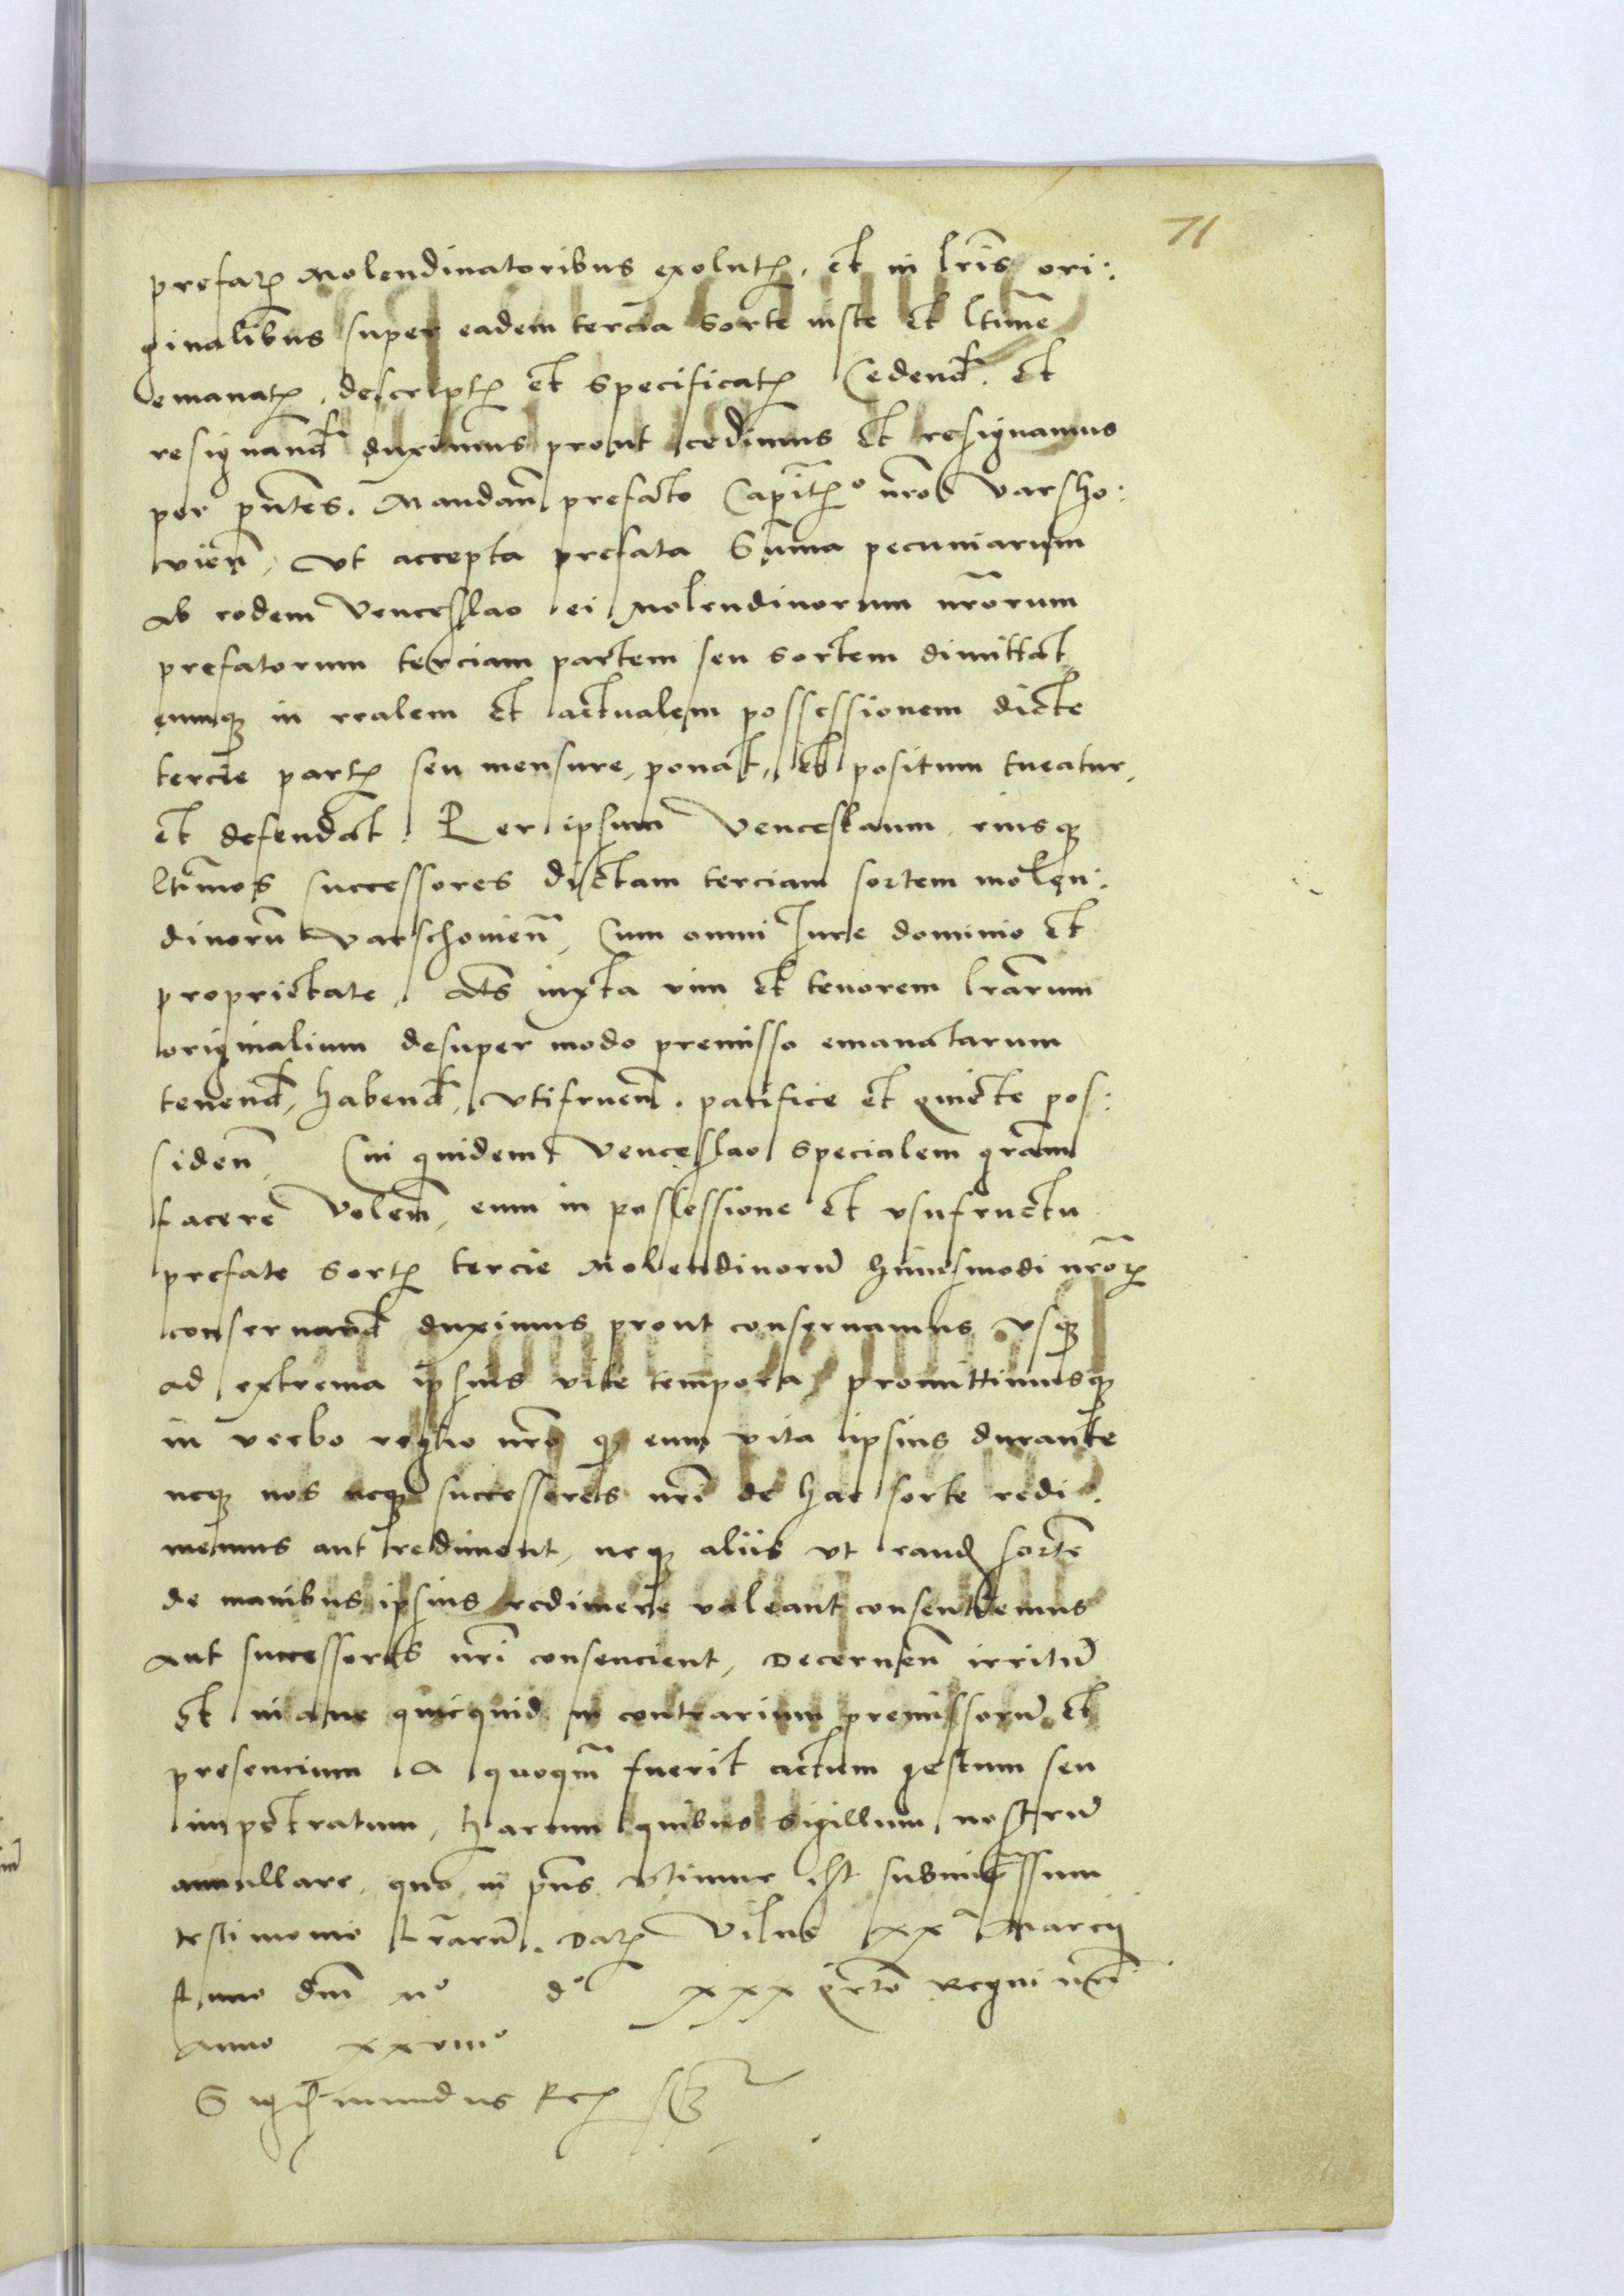 71
prefatis Molendinatoribus exolutis, et in lris ori:
ginalibus super eadem tercia sorte iuste et ltime
emanatis, descriptis et specificatis Cedend. et
resignand duximus prout cedimus et resignamus
per pntes. Mandan prefato Capitaneo nro Varsho:
vien, Vt accepta prefata Suma pecuniarum
ab eodem Venceslao ei Molendinorum nrorum
prefatorum terciam partem seu sortem dimittat
eumq in realem et actualem possessionem dicte
tercie partis seu mensure, ponat, et positum tueatur,
et defendat. Per ipsum Venceslaum eiusq
ltimos successores dictam terciam sortem molen:
dinoru Varschouien, Cum omni Jure dominio et
proprietate. Ats iuxta vim et tenorem lrarum
originalium desuper modo premisso emanatarum
tenend, habend, vtifruen. pacifice et quiete pos:
siden, Cui quidem Venceslao specialem gram
facere Volen, eum in possessione et vsufructu
prefate sortis tercie Molendinoru huiusmodi nror
conseruand duximus prout conseruamus vsq
ad extrema ipsius vite tempora, promittimusq
in verbo regio nro q eum vita ipsius durante
neq nos neq successores nri de hac sorte redi:
memus aut rediment, neq aliis vt eand sorte
de manibus ipsius redimere valeant consentiemus
aut successores nri consencient, Decernen irritu
et inane quicquid in contrarium premissoru et
presencium a quoqm fuerit actum gestum seu
impetratum, harum quibus sigillum nostru
annullare, quo in pns vtimur est subimpressum
testimonio lraru. Dat Vilne XXa Marcij
Anno dni Mo do XXX qrto Regni nri
Anno XXVIIIo
Sigismundus Rex